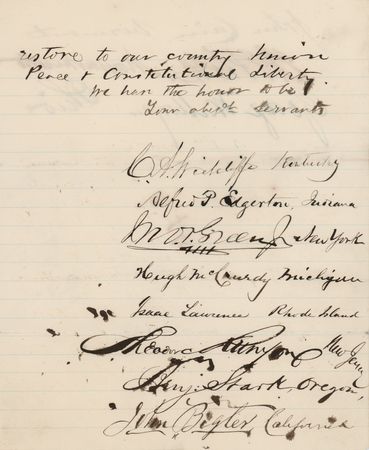 restore to our country Union
Peace & Constitutional Liberty.
We have the honor to be
Your obedt servants
C. A. Wickliffe Kentucky
Alfred P. Edgerton, Indiana
Jno. P. Green Jr New York
Hugh McCurdy Michigan
Isaac Lawrence Rhode Island
Theodore Runyon New Jersey
Benj. Stark, Oregon,
John Bigler, California